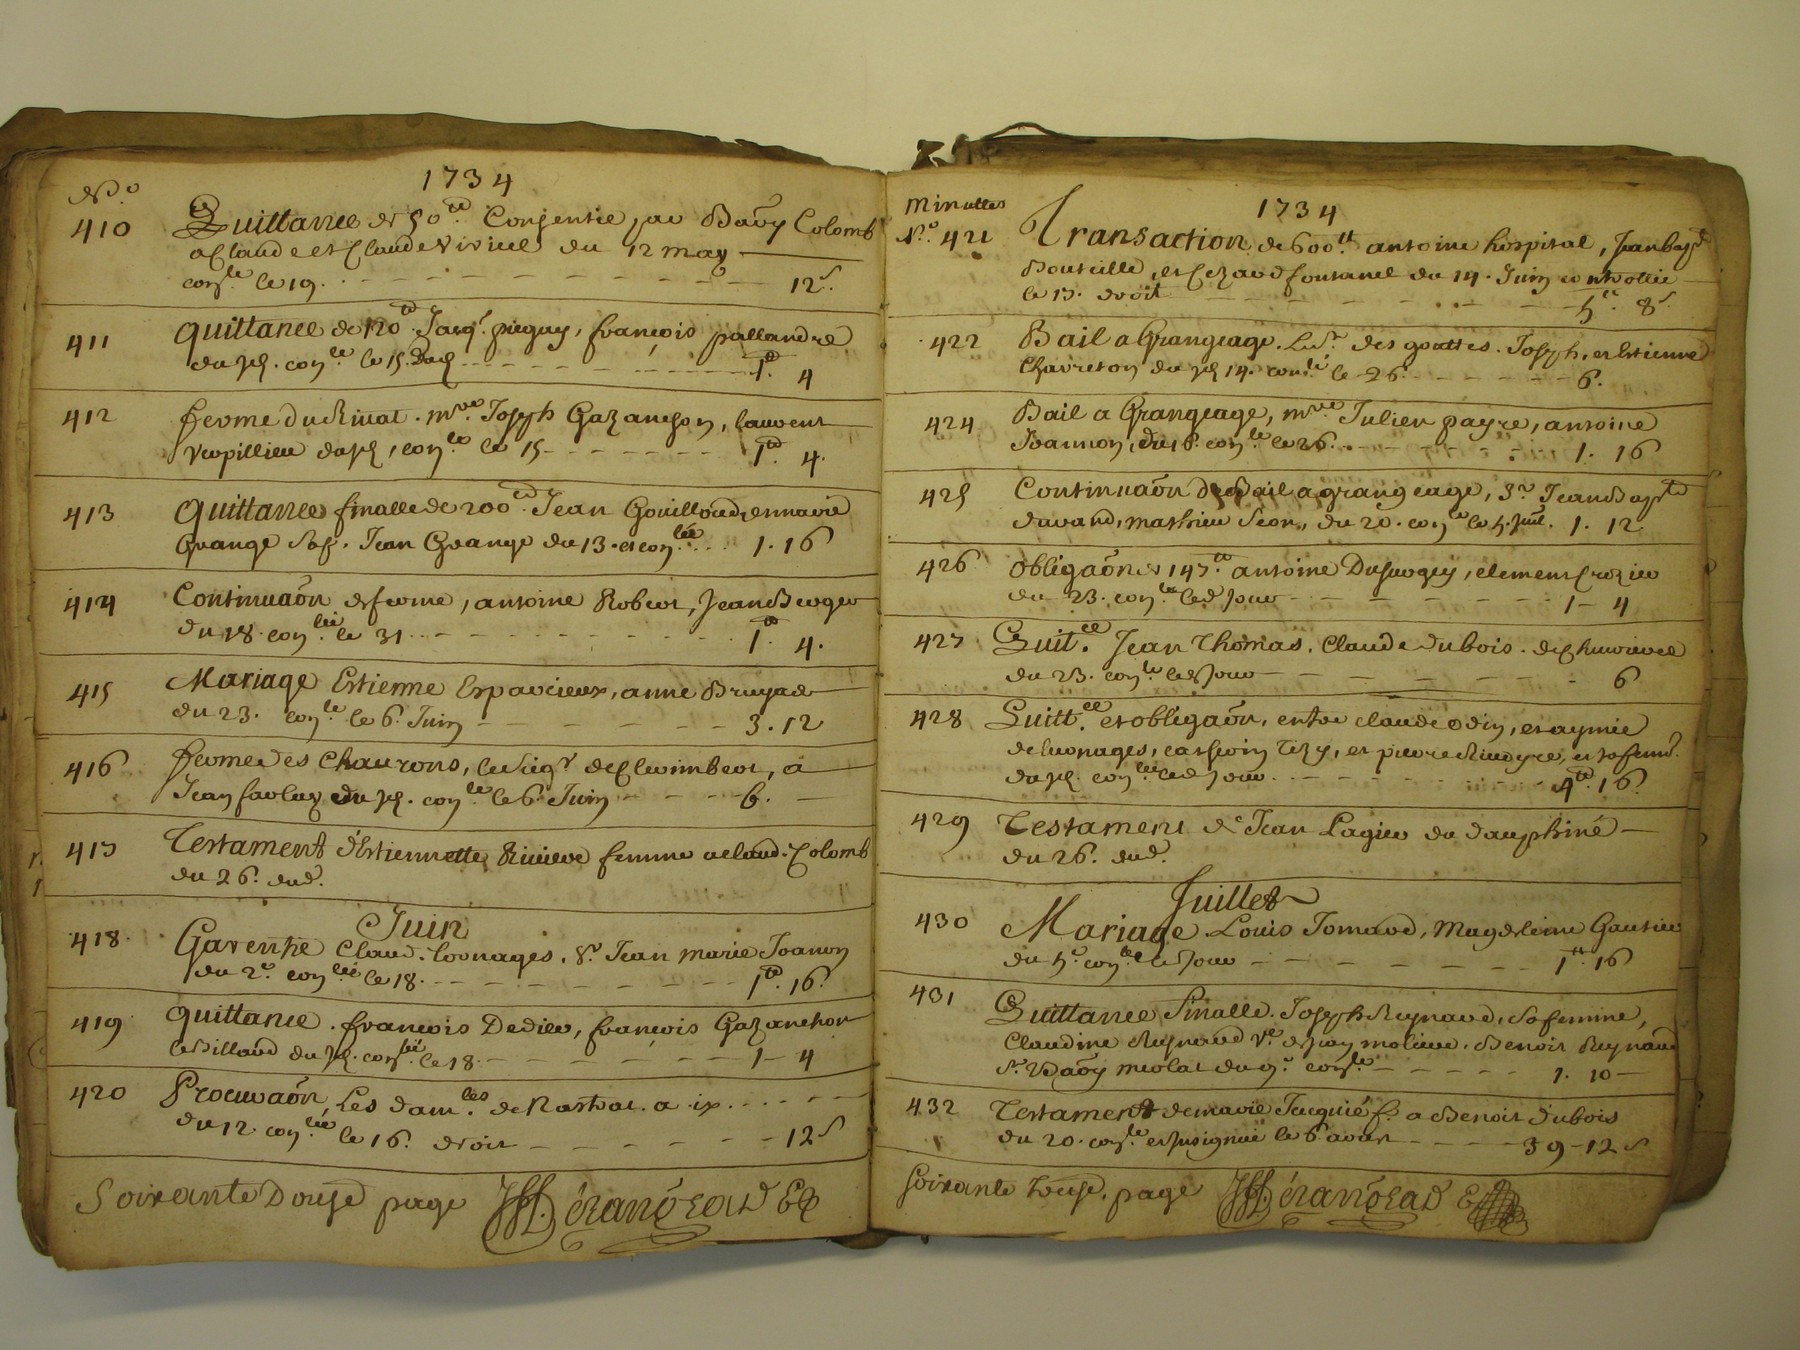 1734
N.o
410 Quittance de 50 tt Consentie par Davy Colomb
a Claude et Claude Viviel du 12 may
con.lé le 19. 12 s.
411 quittance de 120 tt Jacq.s piegay, françois pallandre
du d. con.lé le 15. Dud. 1 tt. 4
412 ferme du Rivat. m.re Joseph Gazanchon, laurent
Verpillieu du d, con.lé le 15 1 tt. 4.
413 quittance finalle de 200 tt Jean Gouilloud, ennavie
Grange Jean Grange du 13. et con.lée 1. 16
414 Continuaõn de ferme, antoine Robert, Jean Berger
du 18. con.lée le 31 1 tt 4.
415 Mariage Estienne Espavcieux, anne Bruyas
du 23. con.lé le 6. Juin 3. 12
416 ferme des Chaurons, le sieg.r de Clerimbert, a
Jean du d. con.lé le 6. Juin 6.
417 Testament d'Estiennette Riviere femme a Claud. Colomb
du 26. dud.
Juin
418. Garentie Claud. Cornages. S.r Jean Marie Joanon
du 2.e con.lée le 18. 1 tt. 16.
419 quittance. françois Dedieu, françois Gazanchon
le Billaud du d. con.lée le 18. 1 - 4
420 Procuraõn, Les dam.les de Nastrat. a ix.
du 12. con.lée le 16. droit 12 s
Soixante Douze page
1734
Minuttes
N.o 421 Transaction de 600 tt antoine hospital, Jean bap.t
Bouteille, et Cezard fontanel du 14. Juin controllée
le 15. droit 5 tt. 8 s
422 Bail a Grangeage. Le s.r des gouttes. Joseph, et Estienne
Chavreton du d 14. con.lé le 26. 6.
424 Bail a Grangeage, m.re Julien payre, antoine
Joannon, du 16. con.lé le 26. 1. 16
425 Continuaõn de Bail a grangeage, s.r Jean Bap.te
davard, mathieu du 20. con.lé le 5. Juil. 1. 12
426 obligaõn de 147 tt antoine Duquogey, clement Crozier
du 23. con.lé led. jour 1 - 4
427 Quit.ce Jean Thomas. Claude Dubois. de Chuvieres
du 23. con.lé led. jour 6
428 Quitt.ce et obligaõn, entre claude odin, et aymie
de Cornages, catherin Tizy, et pierre Rimeyre, et sa fem.e
du d. con.lée led. jour 4 tt. 16.
429 Testament de Jean Lagier du dauphiné
du 26. dud.
Juillet
430 Mariage Louis Jomard, Magdeleine Gautier
du 5.e con.lé led. jour 1 tt. 16
431 Quittance finalle. Joseph Reynaud, sa femme,
Claudine Reynaud V.e de Jean moliere. Benoit Reynaud
S.r Davy micolat du 9.e con.lé 1. 10
432 Testament de marie Jacquié f.e a Benoit Dubois
du 20. con.lé et insignué le 6. aoust 39 - 12 s
Soixante treize. page